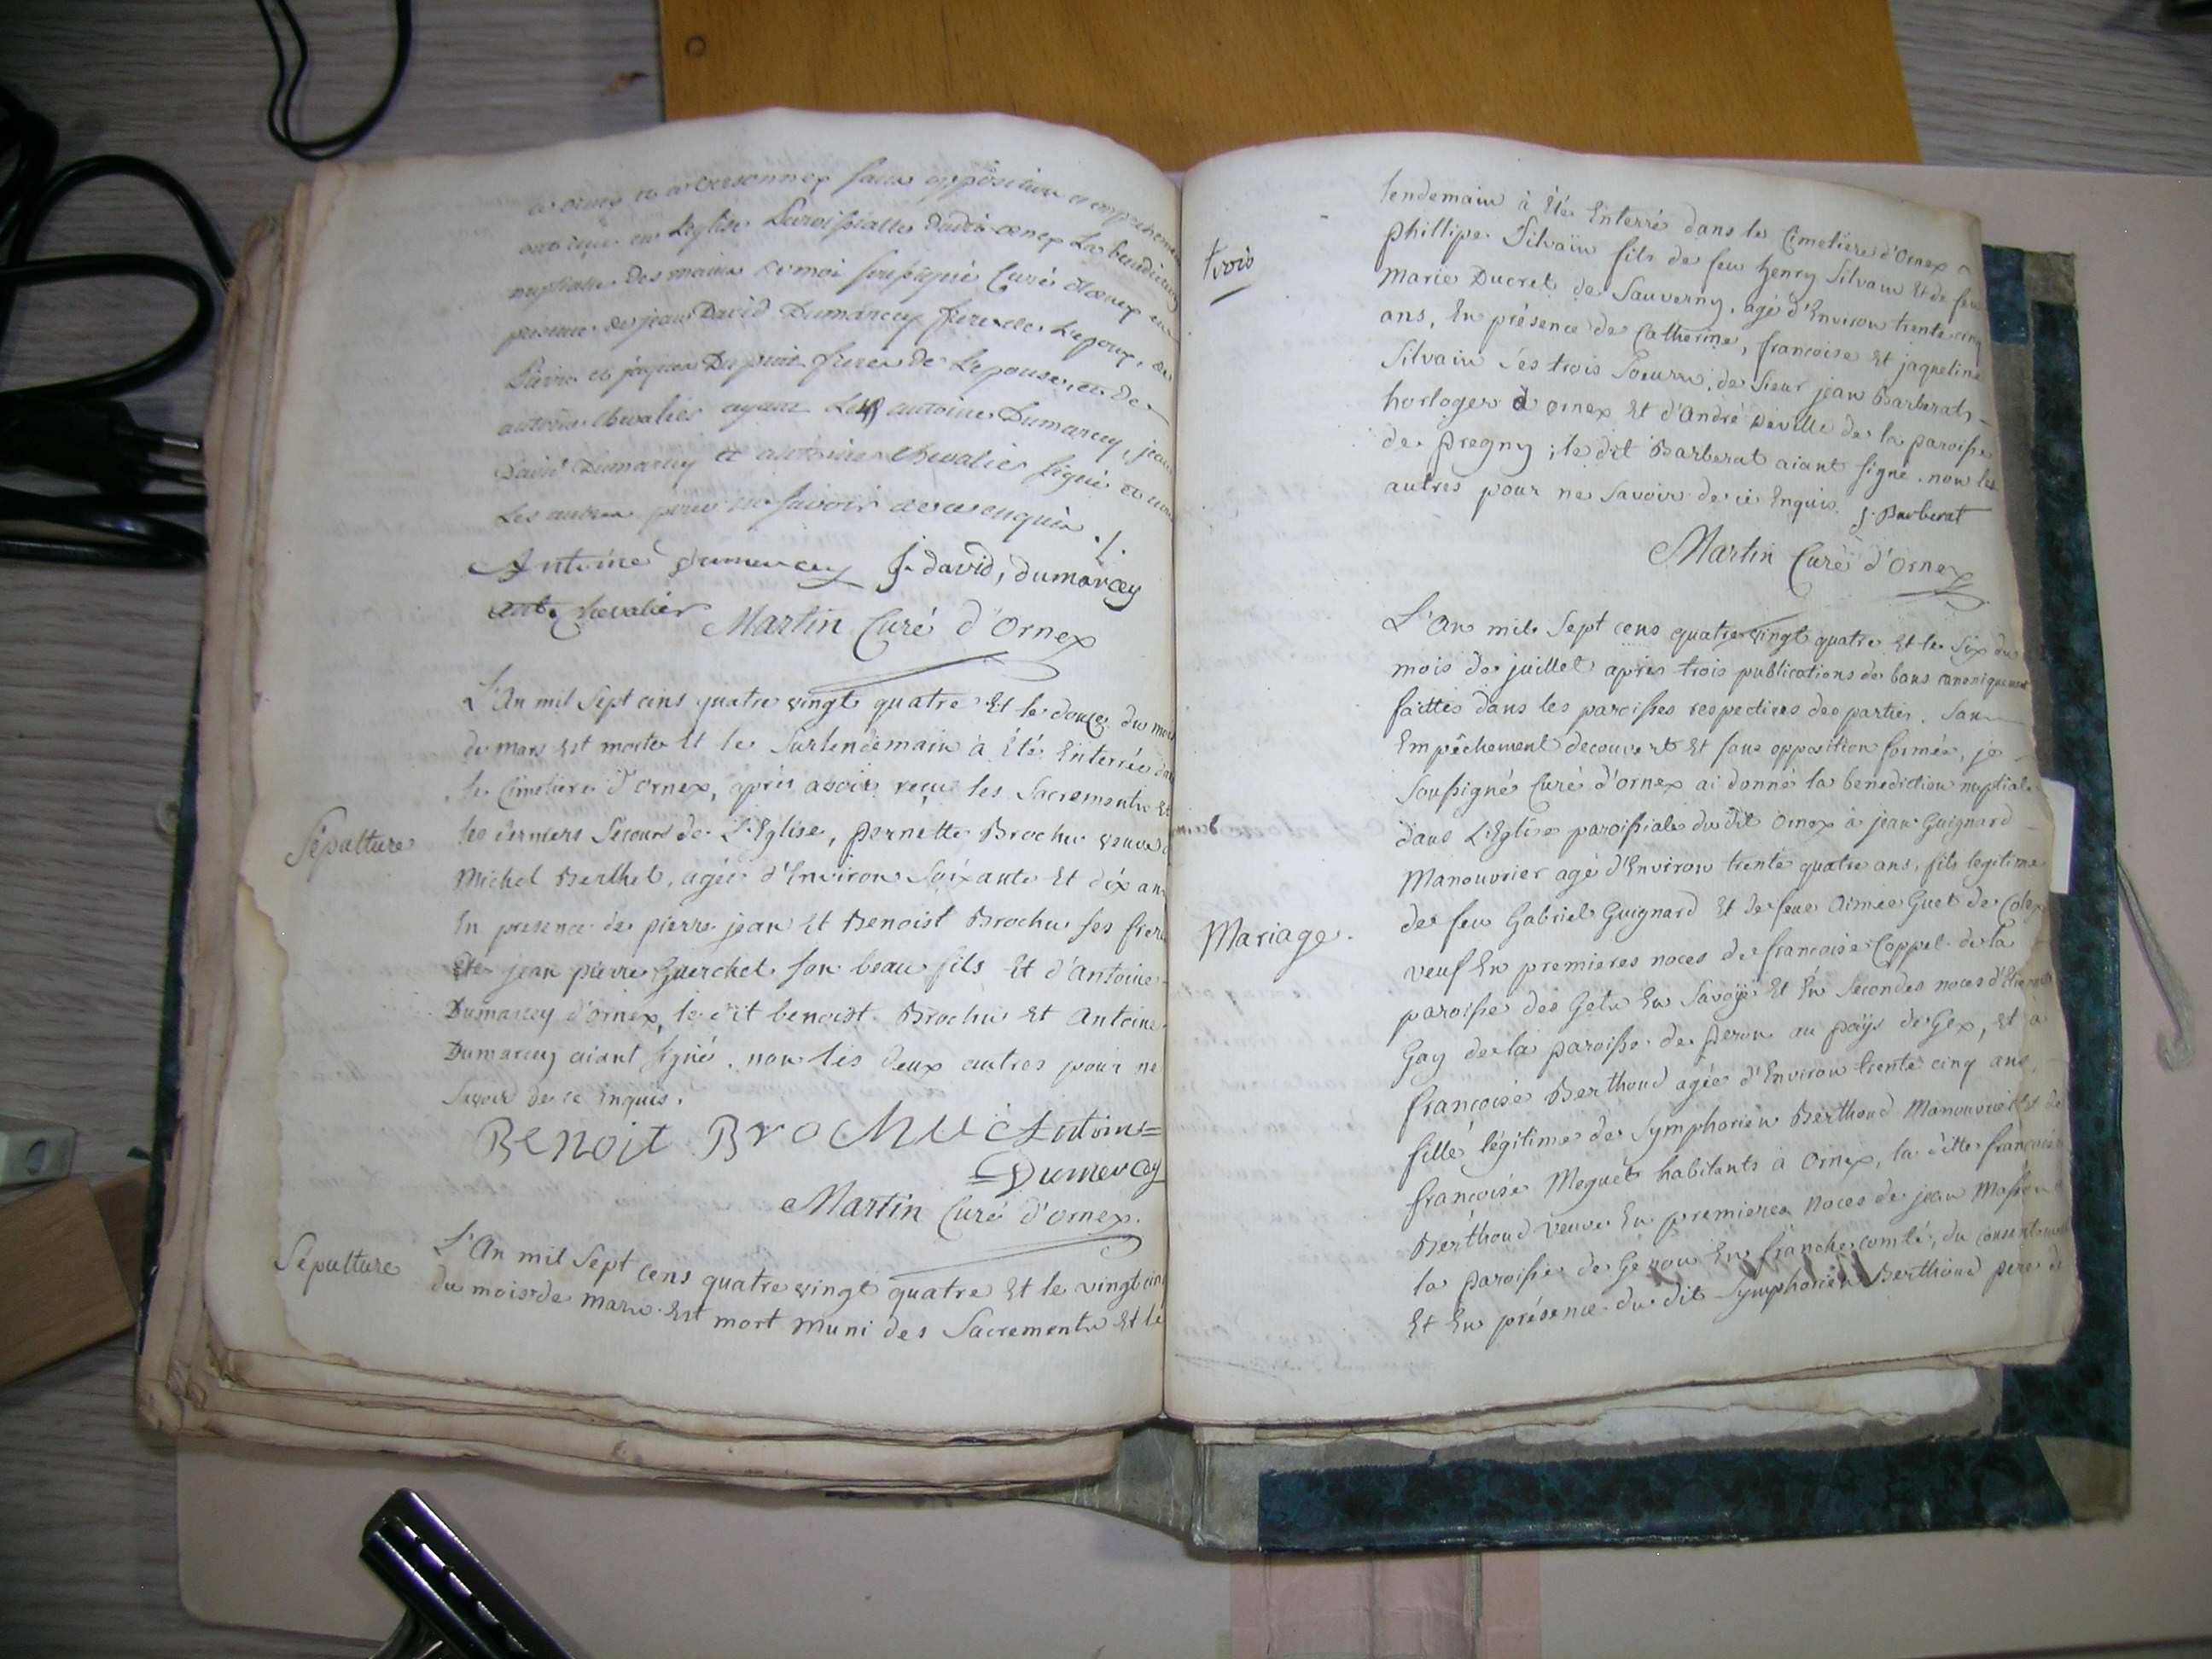 et à Versonnex sans opposition et empêchement
ont reçu en Leglise Paroissialle dudit ornex La benediction
nuptialle des mains de moi soussigné Curé d'ornex en
presence de jean David Dumarcey frere de Lepoux, de
frere de Lepouse, et de
antoine chevalier ayant antoine Dumarcey, jean
David Dumarcey et antoine chevalier signé et non
Les autres pour ne savoir de ce enquis ./.
Antoine Dumercey J. david, dumarcey
ant. chevalier Martin Curé d'Ornex
L'An mil Sept cens quatre vingt quatre Et le douze du mois
de mars Est morte Et le Surlendemain à Été Enterrée dans
le Cimetiere d'Ornex, après avoir reçu les Sacrements Et
Sépulture
les derniers Secours de L'Eglise, pernette Brochu veuve de
Michel Berthet, agée d'Environ Soixante Et dix ans
En presence de pierre jean Et Benoist Brochu ses freres
Et de jean pierre Guerchet son beau fils Et d'Antoine
Dumarcey d'ornex, le dit benoist Brochu Et Antoine
Dumarcey aiant signé. non les deux autres pour ne
Savoir de ce Enquis.
BENOIT BROCHU Antoine=
=Dumercey
Martin Curé d'ornex.
Sépulture
L'An mil Sept cens quatre vingt quatre Et le vingt cinq
du mois de mars Est mort muni des Sacrements Et le
lendemain à Été Enterré dans le Cimetiere d'Ornex
trois
phillipe Silvain fils de feu henry Silvain Et de feue
Marie Ducret de Sauverny, agé d'Environ trente cinq
ans, En présence de Catherine, françoise Et jaqueline
Silvain ses trois Soeurs, de Sieur jean Barberat
horloger à ornex Et d'André Deville de la paroisse
de pregny; le dit Barberat aiant signé. non les
autres pour ne Savoir de ce Enquis. J. Barberat
Martin Curé d'Ornex
L'An mil Sept cens quatre vingt quatre Et le Six du
mois de juillet après trois publications de bans canoniquement
faittes dans les paroisses respectives des parties. Sans
Empêchement decouvert Et sans opposition formée, je
Soussigné Curé d'ornex ai donné la benediction nuptiale
dans L'Eglise paroissiale du dit Ornex à jean Guignard
Manouvrier agé d'Environ trente quatre ans, fils legitime
de feu Gabriel Guignard Et de feue Aimée Guet de Colex
Mariage.
veuf En premieres noces de françoise Coppel de la
paroisse des Gets En Savoye Et En Secondes noces d'Etiennette
Gay de la paroisse de peron au païs de Gex, Et à
françoise Berthoud agée d'Environ trente cinq ans,
fille légitime de Symphorien Berthoud Manouvrier Et de
françoise Meguet habitants à Ornex, la ditte françoise
Berthoud veuve En premieres Noces de jean Masson de
la paroisse de En franche comté, du consentement
Et En présence du dit Symphorien Berthoud pere de